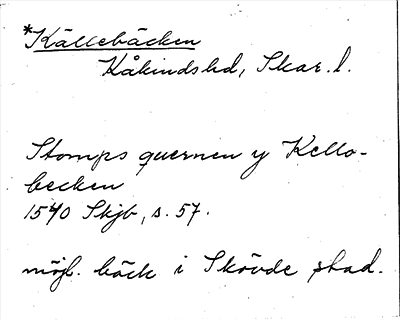 *Källebäcken
Kåkinds hd, Skar. l.
Stomps quernen y Kello-
becken
1540 Skjb, s. 57.
möjl. bäck i Skövde stad.